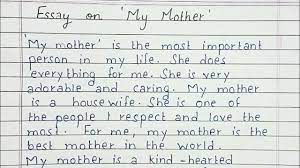 Essay on 'My Mother'
'My mother' is the most important
person in my life. She does
everything for me. She is very
adorable and caring. My mother
is a housewife. She is one of
the people I respect and love the
most. For me, my mother is the
best mother in the world.
My mother is a kind-hearted